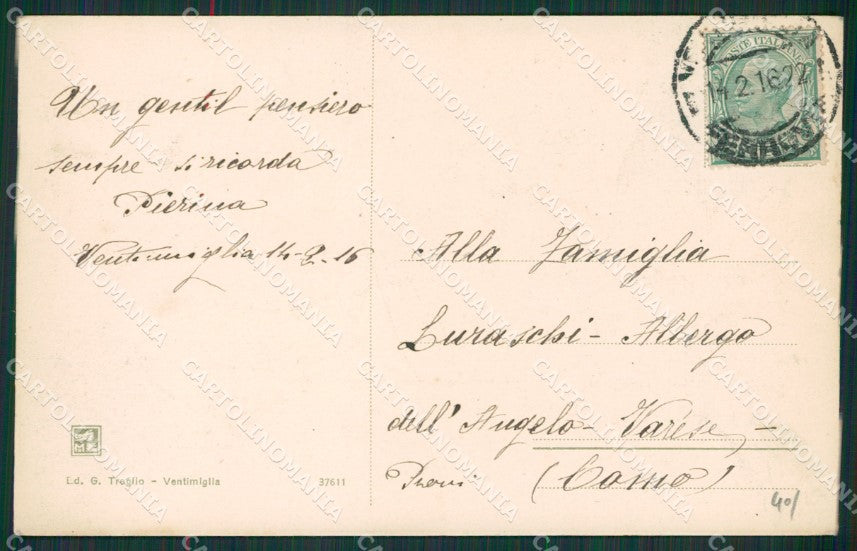 Un gentil pensiero
sempre si ricorda
Pierina
Ventimiglia 14-2-16
POSTE ITALIANE
14.2.16 22
Alla Famiglia
Luraschi - Albergo
dell' Angelo - Varese -
(Como)
Ed. G. Traglio - Ventimiglia
37611
40/
CARTOLINOMANIA